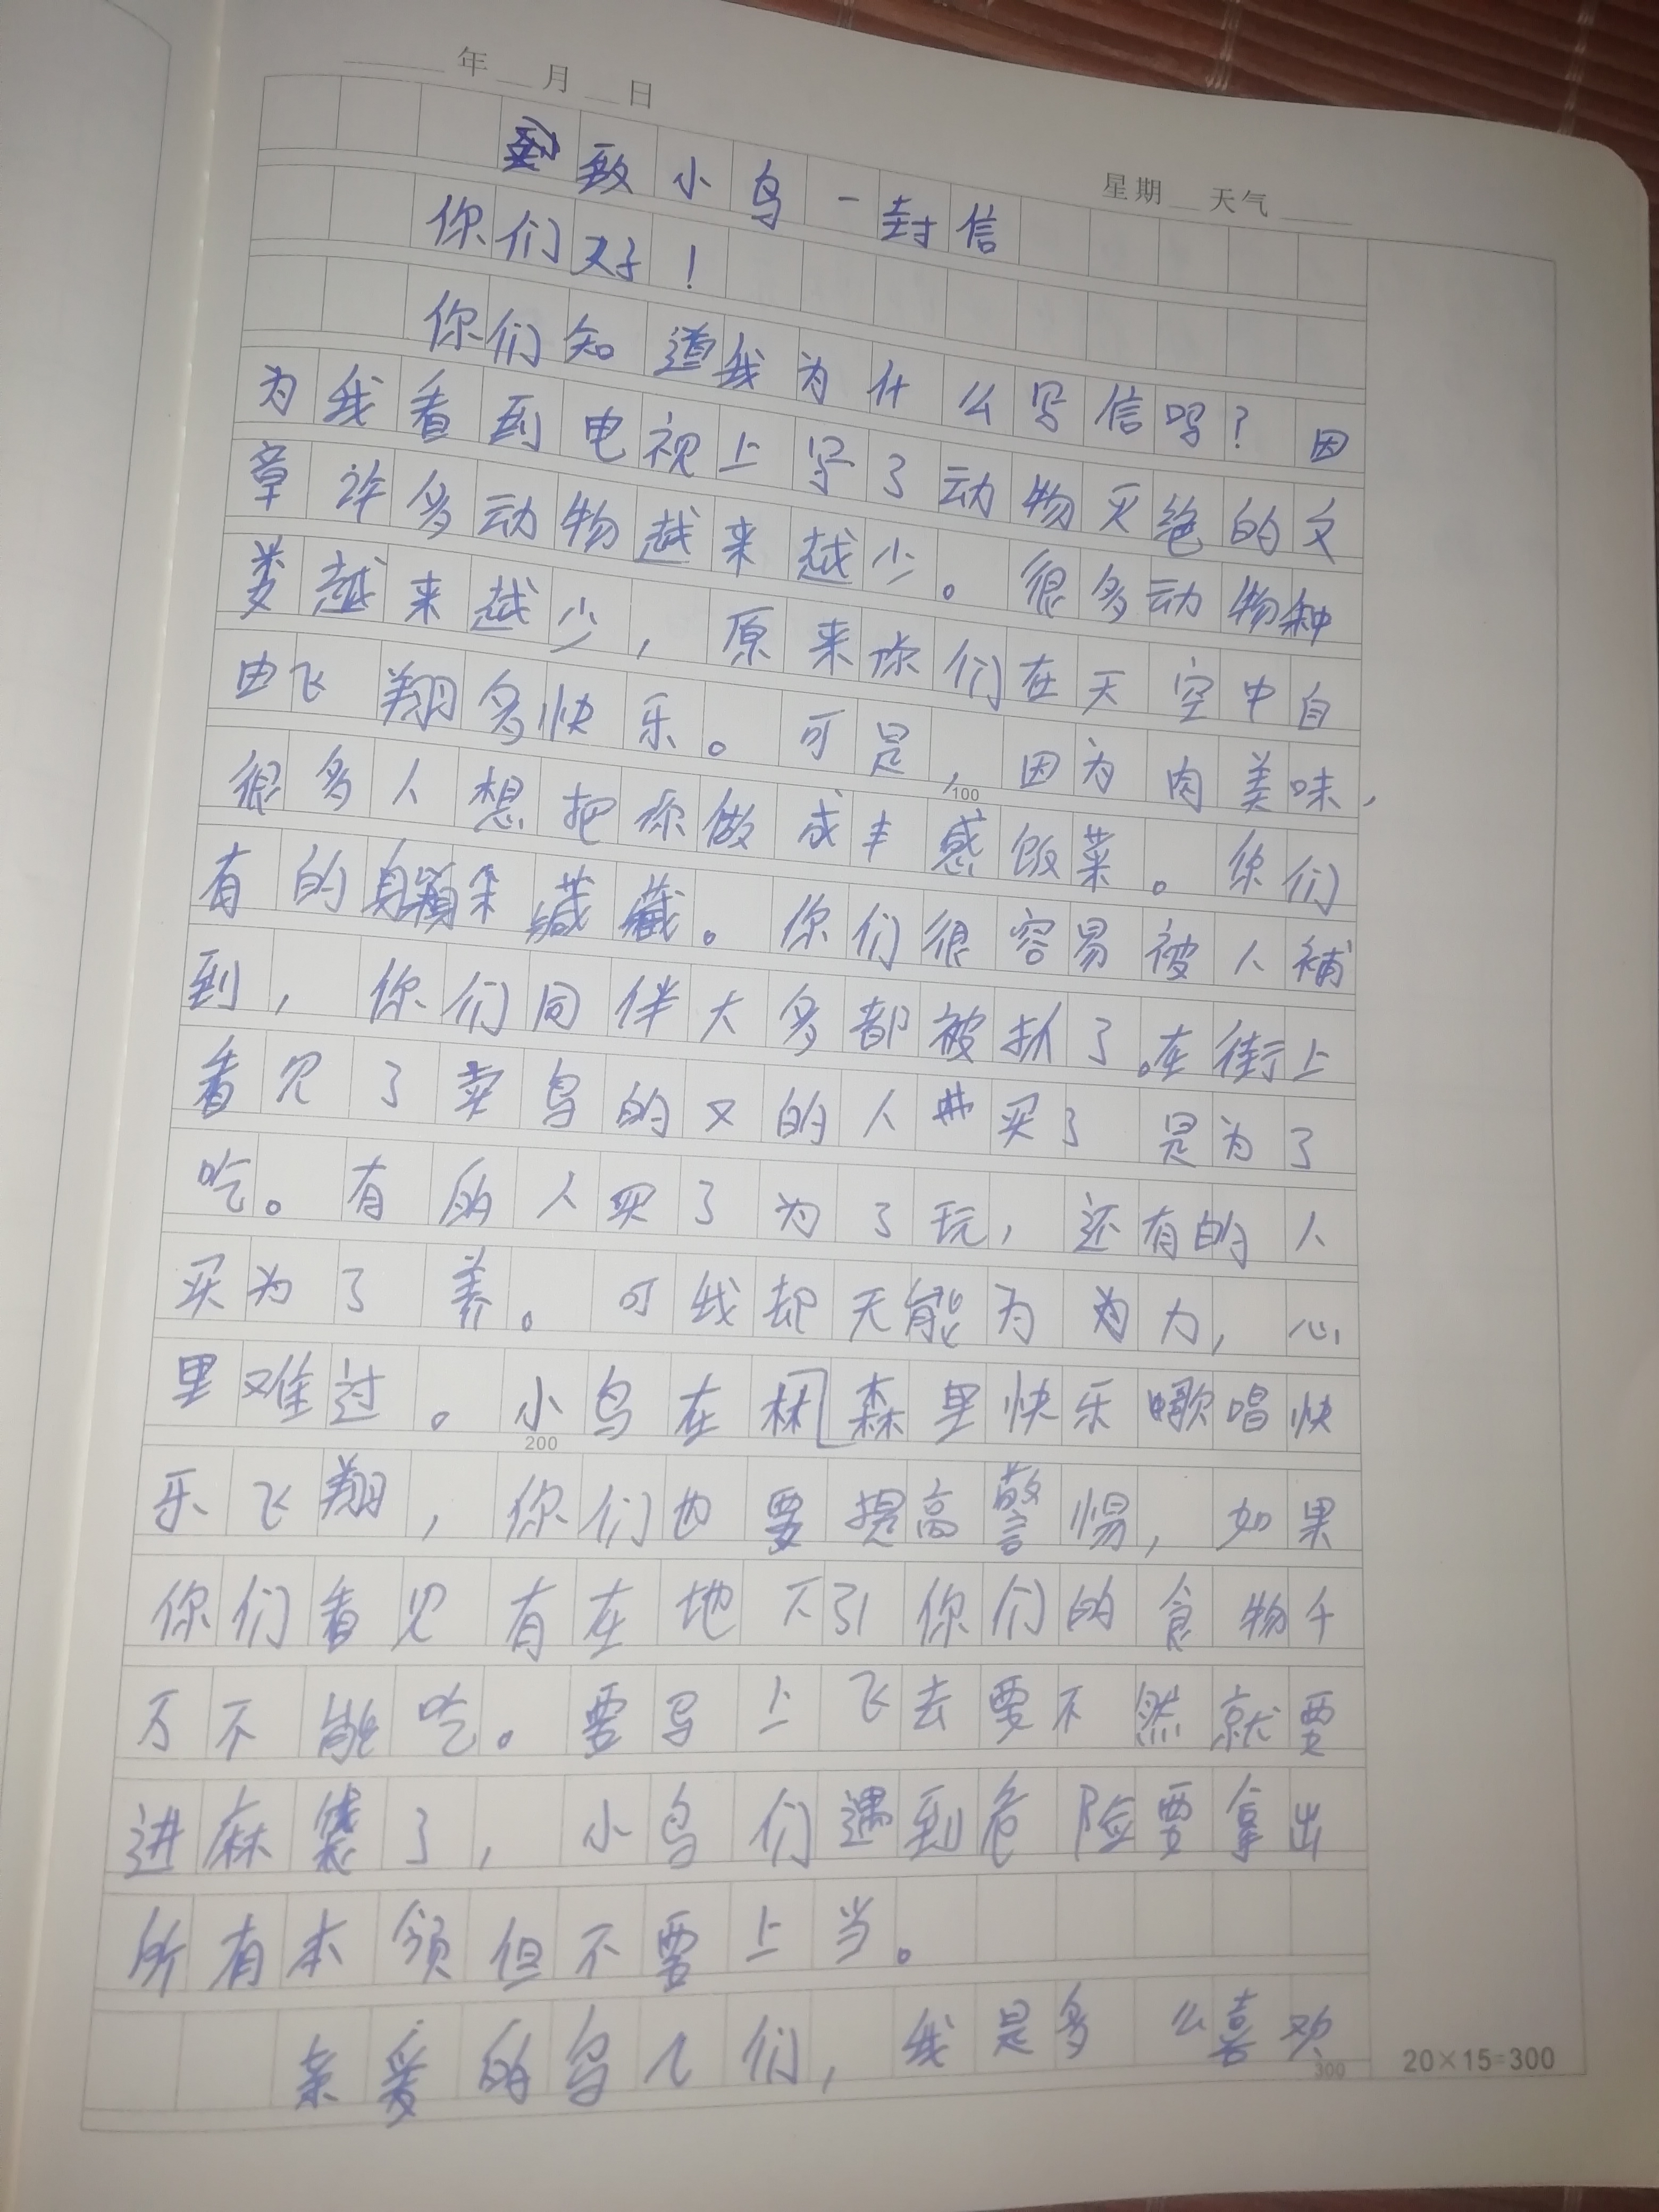 年 月 日
星期 天气
致小鸟一封信
你们好！
你们知道我为什么写信吗？因
为我看到电视上写了动物灭绝的文
章许多动物越来越少。很多动物种
类越来越少，原来你们在天空中自
由飞翔多快乐。可是，因为肉美味，
100
很多人想把你做成丰感饭菜。你们
有的藏。你们很容易被人補
到，你们同伴大多都被抓了。在街上
看见了卖鸟的又的人买了是为了
吃。有的人买了为了玩，还有的人
买为了养。可我却无能为为力，心
里难过。小鸟在林森里快乐歌唱快
200
乐飞翔，你们也要提高警惕，如果
你们看见有在地下引你们的食物千
万不能吃。要马上飞去要不然就要
进麻袋了，小鸟们遇到危险要拿出
所有本领但不要上当。
亲爱的鸟儿们，我是多么喜欢
300
20×15=300